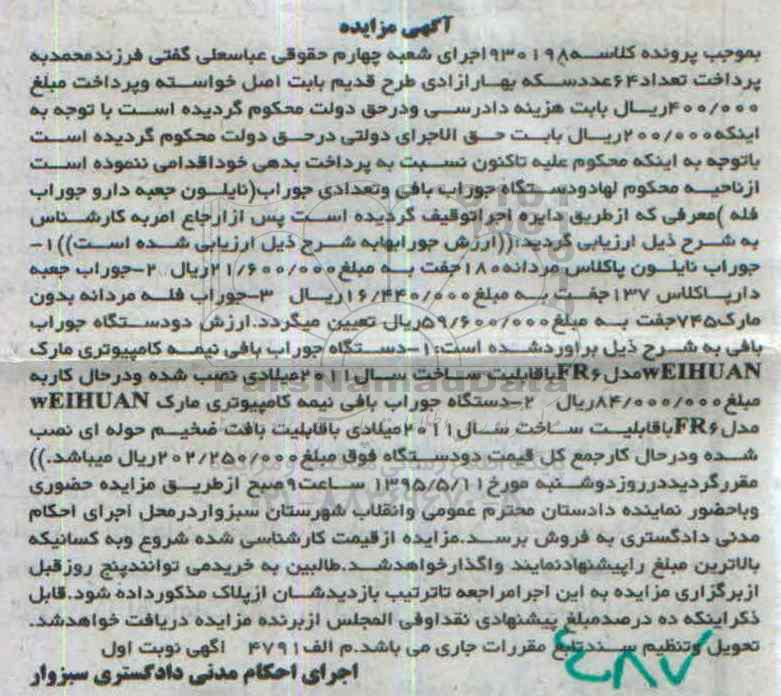 آگهی مزایده
بموجب پرونده کلاسه۹۳۰۱۹۸اجرای شعبه چهارم حقوقی عباسعلی گفتی فرزندمحمدبه
پرداخت تعداد۶۴عددسکه بهارازادی طرح قدیم بابت اصل خواسته وپرداخت مبلغ
۴۰۰/۰۰۰ریال بابت هزینه دادرسی ودرحق دولت محکوم گردیده است با توجه به
اینکه۲۰۰/۰۰۰ریال بابت حق الاجرای دولتی درحق دولت محکوم گردیده است
باتوجه به اینکه محکوم علیه تاکنون نسبت به پرداخت بدهی خوداقدامی ننموده است
ازناحیه محکوم لهادودستگاه جوراب بافی وتعدادی جوراب(نایلون جعبه دارو جوراب
فله )معرفی که ازطریق دایره اجراتوقیف گردیده است پس ازارجاع امربه کارشناس
به شرح ذیل ارزیابی گردید:((ارزش جورابهابه شرح ذیل ارزیابی شده است))۱-
جوراب نایلون پاکلاس مردانه۱۸۰جفت به مبلغ۲۱/۶۰۰/۰۰۰ریال ۲-جوراب جعبه
دارپاکلاس ۱۳۷جفت به مبلغ۱۶/۴۴۰/۰۰۰ریال ۳-جوراب فله مردانه بدون
مارک۷۴۵جفت به مبلغ۵۹/۶۰۰/۰۰۰ریال تعیین میگردد.ارزش دودستگاه جوراب
بافی به شرح ذیل برآوردشده است:۱-دستگاه جوراب بافی نیمه کامپیوتری مارک
wEIHUANمدل۶FRباقابلیت ساخت سال۲۰۱۱میلادی نصب شده ودرحال کاربه
مبلغ۸۴/۰۰۰/۰۰۰ریال ۲-دستگاه جوراب بافی نیمه کامپیوتری مارک wEIHUAN
مدل۶FRباقابلیت ساخت سال۲۰۱۱میلادی باقابلیت بافت ضخیم حوله ای نصب
شده ودرحال کارجمع کل قیمت دودستگاه فوق مبلغ۲۰۲/۲۵۰/۰۰۰ریال میباشد.))
مقررگردیددرروزدوشنبه مورخ۱۳۹۵/۵/۱۱ ساعت۹صبح ازطریق مزایده حضوری
وباحضور نماینده دادستان محترم عمومی وانقلاب شهرستان سبزواردرمحل اجرای احکام
مدنی دادگستری به فروش برسد.مزایده ازقیمت کارشناسی شده شروع وبه کسانیکه
بالاترین مبلغ راپیشنهادنمایند واگذارخواهدشد.طالبین به خریدمی توانندپنج روزقبل
ازبرگزاری مزایده به این اجرامراجعه تاترتیب بازدیدشان ازپلاک مذکورداده شود.قابل
ذکراینکه ده درصدمبلغ پیشنهادی نقداوفی المجلس ازبرنده مزایده دریافت خواهدشد.
تحویل وتنظیم سندتابع مقررات جاری می باشد.م الف۴۷۹۱ آگهی نوبت اول
اجرای احکام مدنی دادگستری سبزوار
ParsNamadData